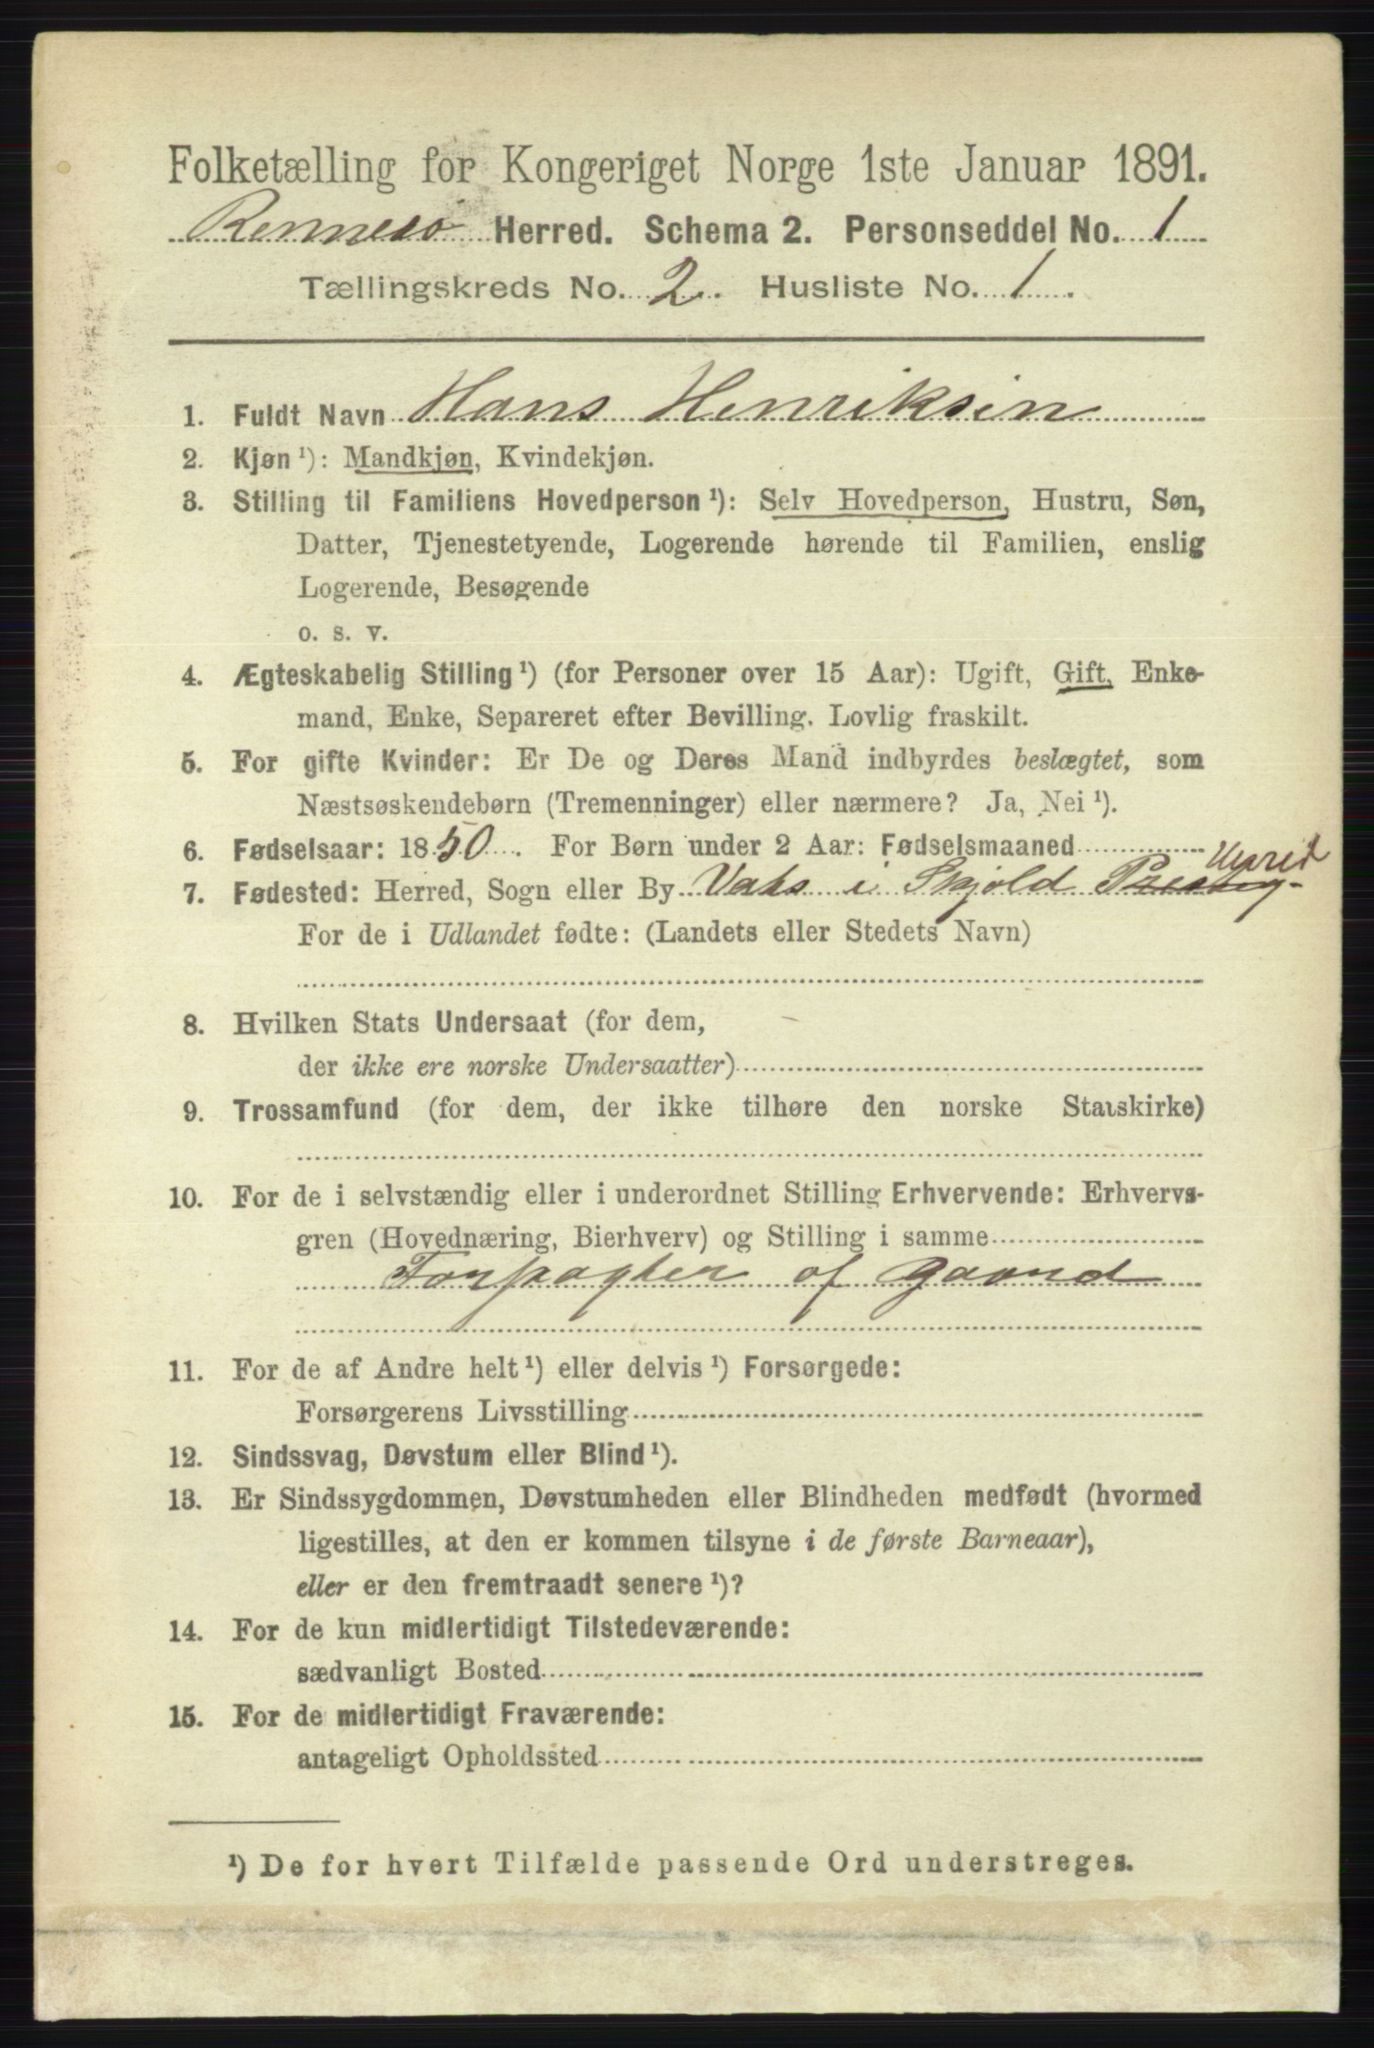 Folketælling for Kongeriget Norge 1ste Januar 1891.
Rennesø Herred. Schema 2. Personseddel No. 1
Tællingskreds No. 2. Husliste No. 1.
1. Fuldt Navn Hans Henriksin
2. Kjøn ¹): Mandkjøn, Kvindekjøn.
3. Stilling til Familiens Hovedperson ¹): Selv Hovedperson, Hustru, Søn,
Datter, Tjenestetyende, Logerende hørende til Familien, enslig
Logerende, Besøgende
o. s. v.
4. Ægteskabelig Stilling ¹) (for Personer over 15 Aar): Ugift, Gift, Enke-
mand, Enke, Separeret efter Bevilling. Lovlig fraskilt.
5. For gifte Kvinder: Er De og Deres Mand indbyrdes beslægtet, som
Næstsøskendebørn (Tremenninger) eller nærmere? Ja, Nei ¹).
6. Fødselsaar: 1850. For Børn under 2 Aar: Fødselsmaaned
7. Fødested: Herred, Sogn eller By Vaks i Skjold
For de i Udlandet fødte: (Landets eller Stedets Navn)
8. Hvilken Stats Undersaat (for dem,
der ikke ere norske Undersaatter)
9. Trossamfund (for dem, der ikke tilhøre den norske Statskirke)
10. For de i selvstændig eller i underordnet Stilling Erhvervende: Erhvervs-
gren (Hovednæring, Bierhverv) og Stilling i samme
Forpagter af Gaard
11. For de af Andre helt ¹) eller delvis ¹) Forsørgede:
Forsørgerens Livsstilling
12. Sindssvag, Døvstum eller Blind ¹).
13. Er Sindssygdommen, Døvstumheden eller Blindheden medfødt (hvormed
ligestilles, at den er kommen tilsyne i de første Barneaar),
eller er den fremtraadt senere ¹)?
14. For de kun midlertidigt Tilstedeværende:
sædvanligt Bosted
15. For de midlertidigt Fraværende:
antageligt Opholdssted
¹) De for hvert Tilfælde passende Ord understreges.